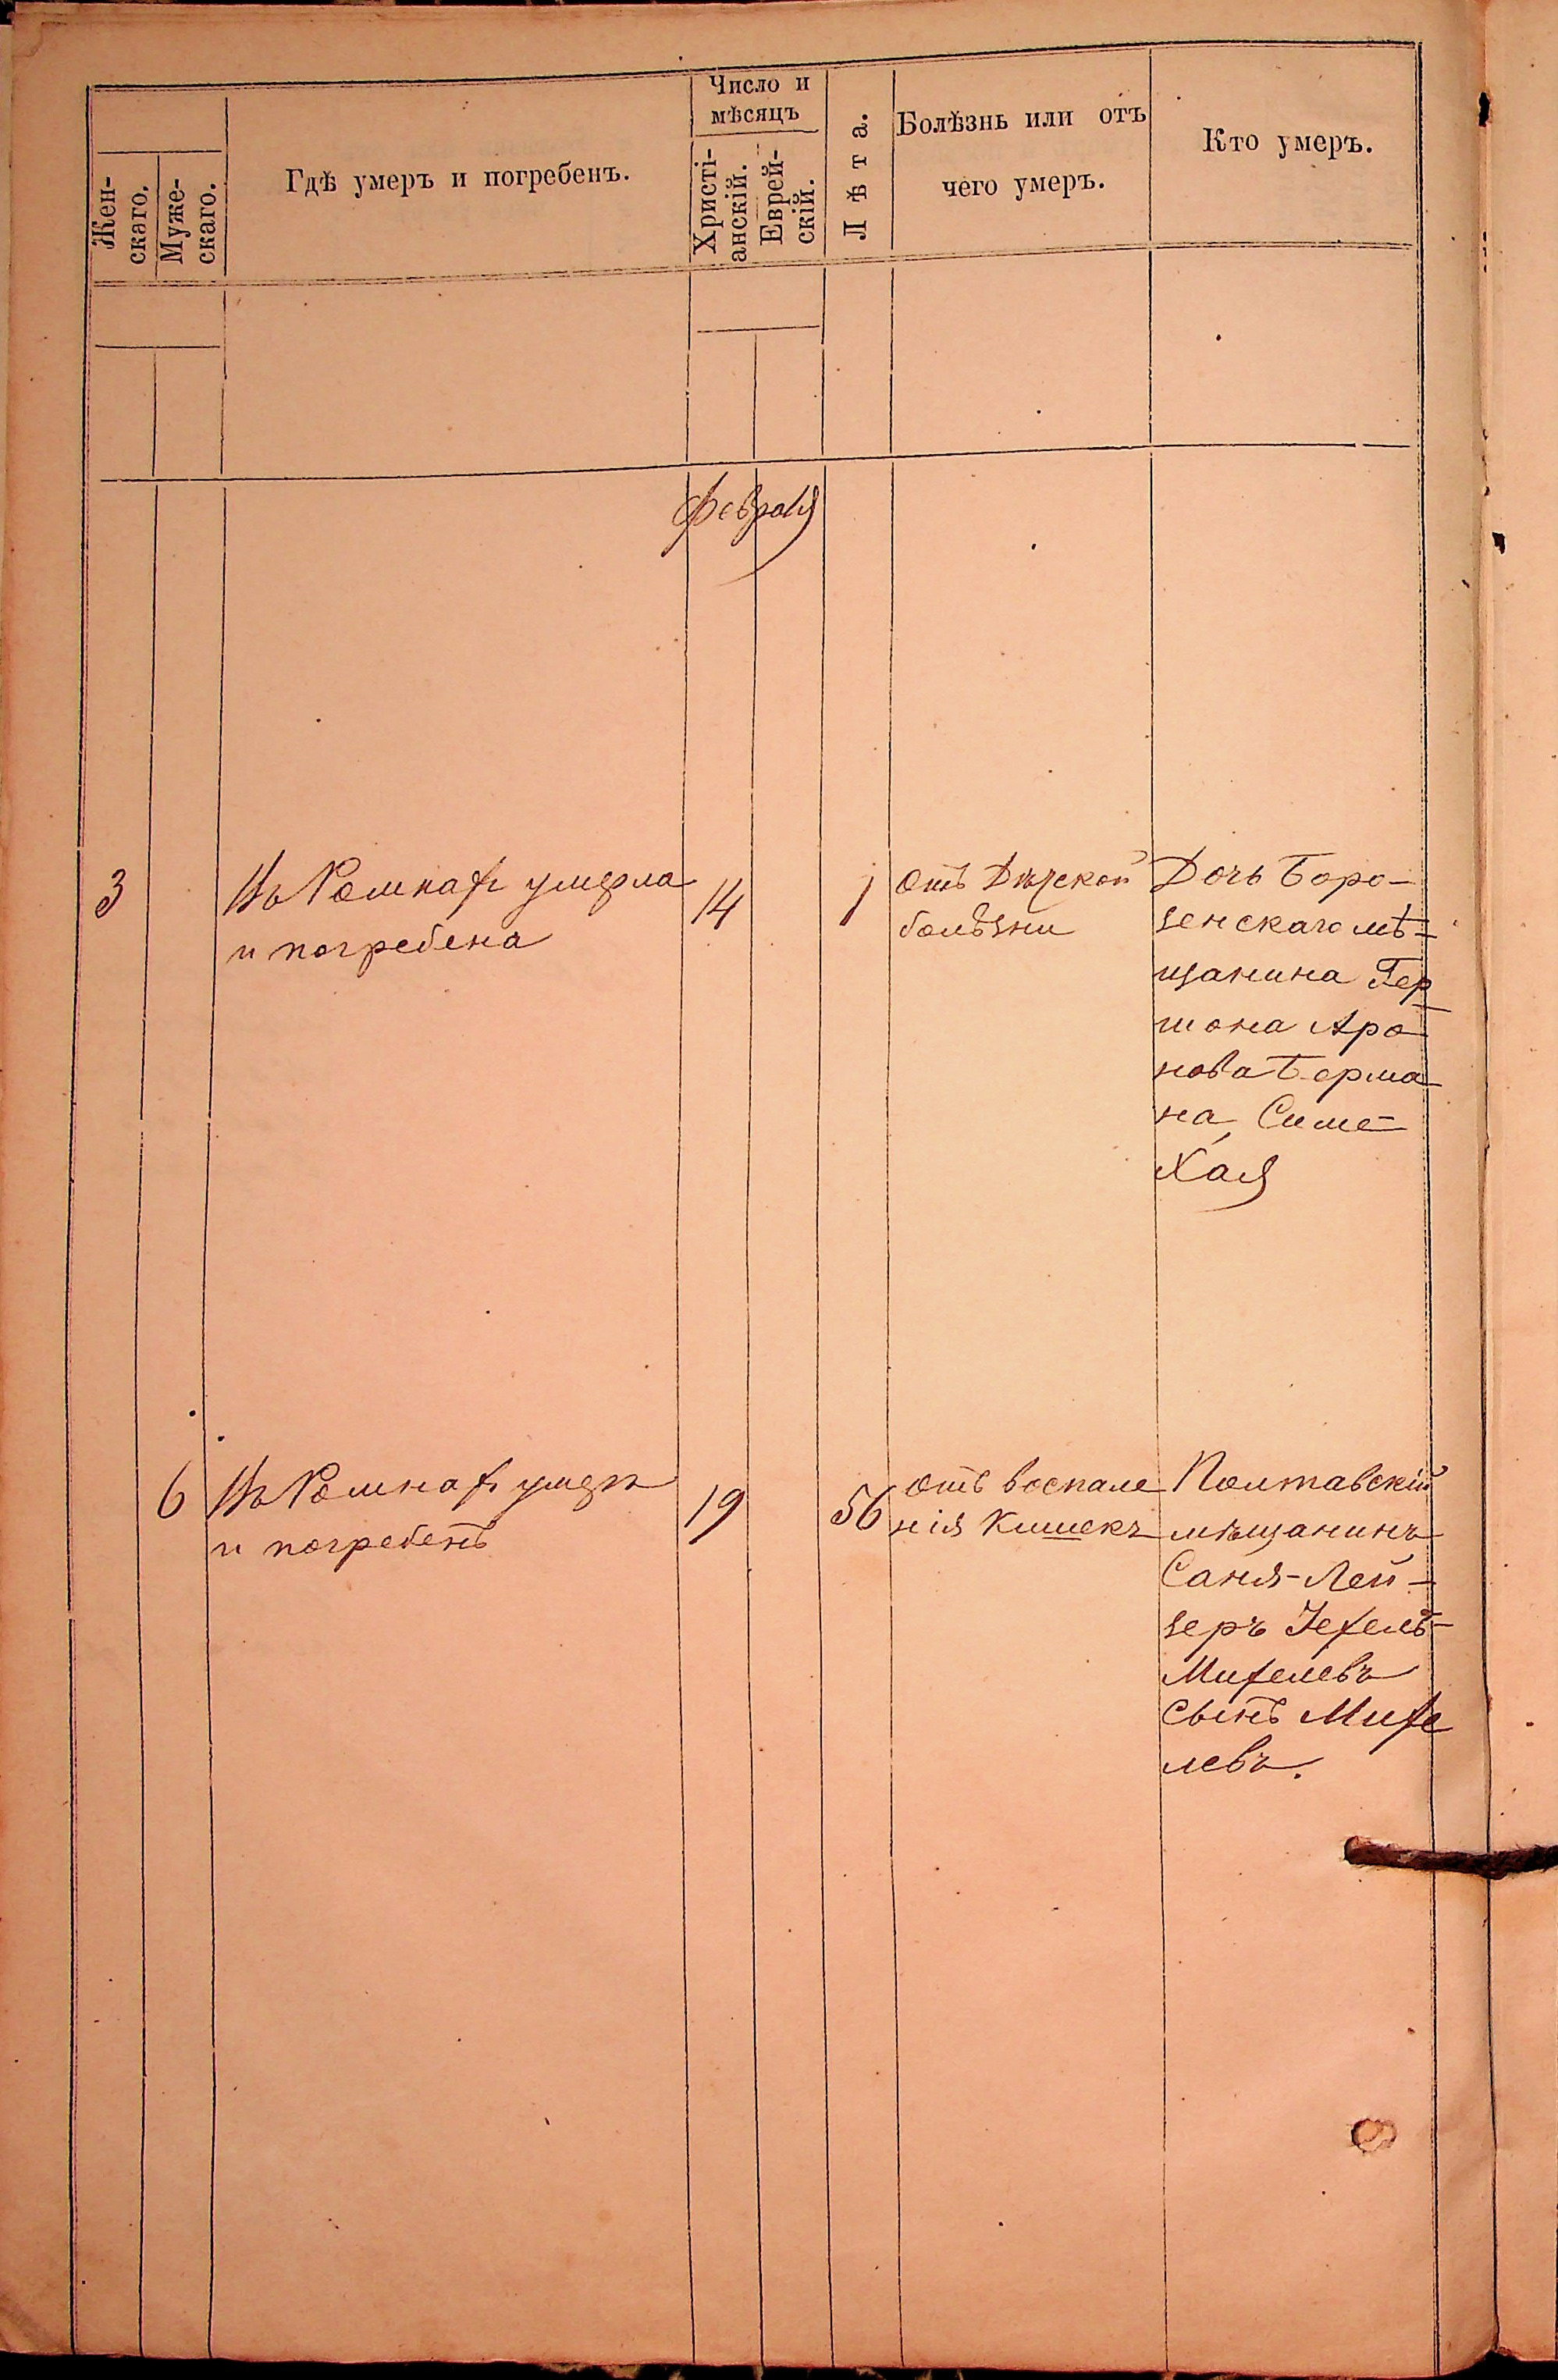 Жен-
скаго.
Муже-
скаго.
Гдѣ умеръ и погребенъ.
Число и
мѣсяцъ
Христі-
анскій.
Еврей-
скій.
Лѣта.
Болѣзнь или отъ
чего умеръ.
Кто умеръ.
Февраля
3
Въ Ромнахъ умерла
и погребена
14
1
отъ Дѣтской
болѣзни
Дочь Боро-
зенскаго мѣ-
щанина Гер
шона Аро-
нова Берма-
на Симе-
Хая
6
Въ Ромнахъ умеръ
и погребенъ
19
56
отъ воспале
нія Кишекъ
Полтавскій
мѣщанинъ
Саня-Лей-
зеръ
Михелевъ
сынъ Михе
левъ.